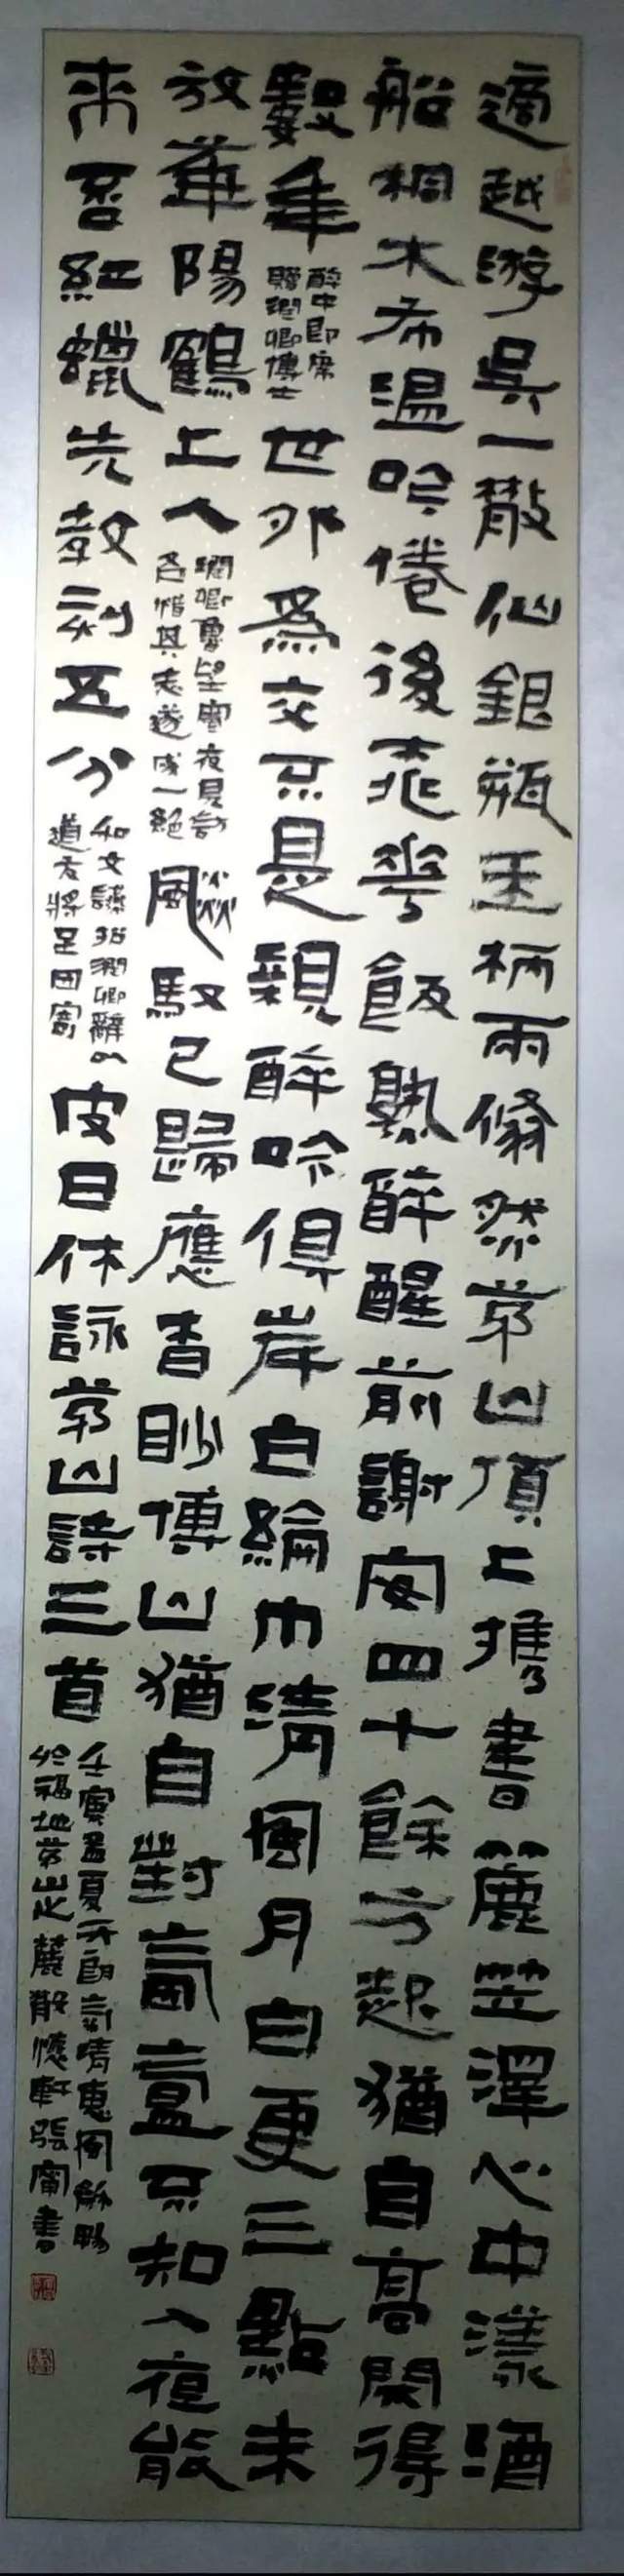 適越游吳一散仙銀瓶玉柄兩翛然茅山頂上擕書簏笠澤心中漾酒
船桐木布温吟倦後桃花飯熟醉醒前謝安四十餘方起猶自高閑得
數年
醉中即席
贈潤卿博士
世外爲交不是親醉吟俱岸白綸巾清風月白更三點未
放華陽鶴上人
潤卿魯望寒夜見訪
各惜其志遂成一絕
飈馭已歸應杳眇博山猶自對氛氳不知入夜能
來否紅蠟先教刻五分
和文讌招潤卿辭以
道友將至因寄
皮日休詠茅山詩三首
壬寅孟夏天朗氣清惠風龢暢
於福地茅山之麓散懷軒張甯書